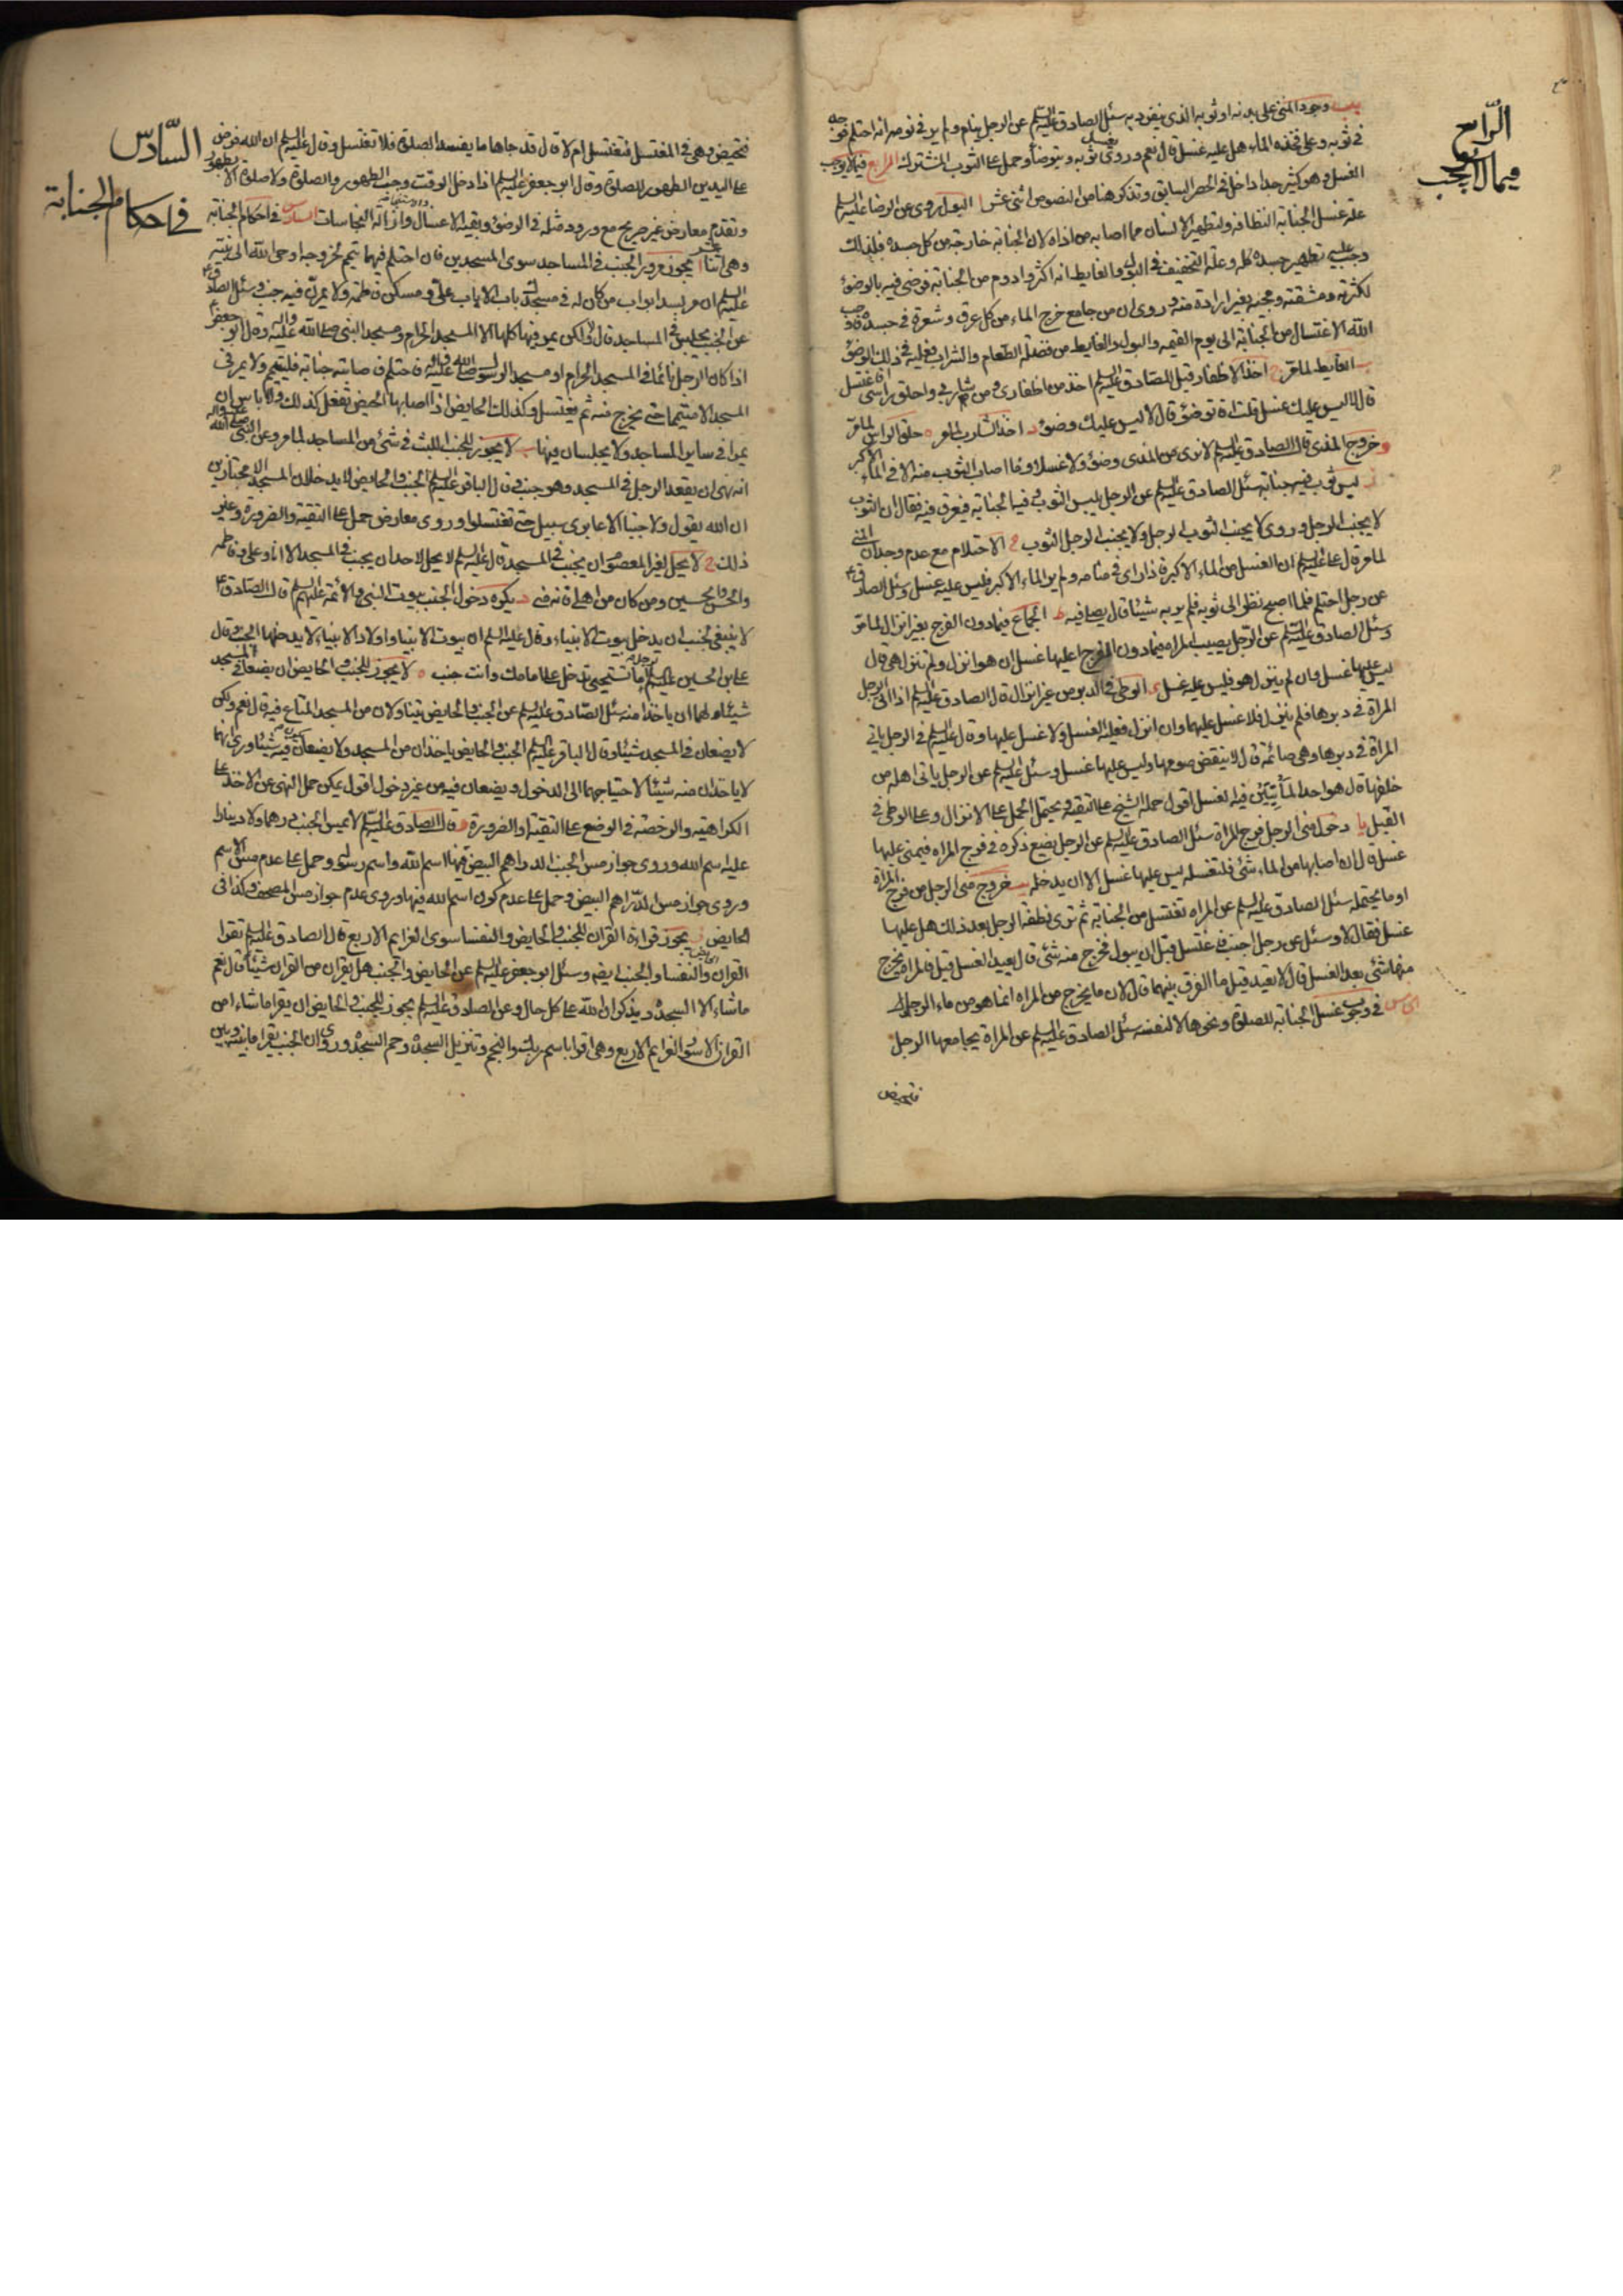 الرابع
فيما لا يوجب
يب وجود المني على بدنه او ثوبه الذي ينفرد به سئل الصادق عليه السلم عن الرجل ينام ولم ير في نومه انه احتلم فوجد
في ثوبه وعلى فخذه الماء هل عليه غسل قال نعم وروى يغسل ثوبه ويتوضأ وحمل على الثوب المشترك الرابع فيما لا يوجب
الغسل وهو كثير جدا داخل في الحصر السابق ونذكر هنا من المنصوص اثنى عشر ا البول روى عن الرضا عليه السلم
علة غسل الجنابة النظافة ولتطهير الانسان مما اصابه من اذاه لان الجنابة خارجة من كل جسده فلذلك
وجب عليه تطهير جسده كله وعلة التخفيف في البول والغايط انه اكثر وادوم من الجنابة فرضى فيه بالوضوء
لكثرته ومشقته ومجيئه بغير ارادة منه وروى ان من جامع خرج الماء من كل عرق وشعرة في جسده فاوجب
الله الاغتسال من الجنابة الى يوم القيمة والبول والغايط من فضلة الطعام والشراب فعليه في ذلك الوضوء
ب الغايط لما مر ج اخذ الاظفار قيل للصادق عليه السلم اخذ من اظفاري ومن شاربي واحلق راسي افاغتسل
قال لا ليس عليك غسل قلت فاتوضؤ قال لا ليس عليك وضوء د اخذ الشارب لما مر ه حلق الراس لما مر
و خروج المذى قال الصادق عليه السلم لا نرى من المذى وضوء ولا غسلا وما اصاب الثوب منه الا في الماء الاكبر
ز لبس ثوب فيه جنابة سئل الصادق عليه السلم عن الرجل يلبس الثوب وفيه الجنابة فيعرق فيه فقال ان الثوب
لا يجنب الرجل وروى لا يجنب الثوب الرجل ولا يجنب الرجل الثوب ح الاحتلام مع عدم وجدان المني
لما مر قال علي عليه السلم ان الغسل من الماء الاكبر فاذا راى في منامه ولم ير الماء الاكبر فليس عليه غسل وسئل الصادق ع
عن رجل احتلم فلما اصبح نظر الى ثوبه فلم ير به شيئا قال يصلي فيه ط الجماع فيما دون الفرج بغير انزال لما مر
وسئل الصادق عليه السلم عن الرجل يصيب المراة فيما دون الفرج اعليها غسل ان هو انزل ولم تنزل هي قال
ليس عليها غسل وان لم ينزل هو فليس عليه غسل ى الوطى في الدبر من غير انزال قال الصادق عليه السلم اذا اتى الرجل
المراة في دبرها فلم ينزل فلا غسل عليهما وان انزل فعليه الغسل ولا غسل عليها وقال عليه السلم في الرجل ياتي
المراة في دبرها وهي صائمة قال لا ينقض صومها وليس عليها غسل وسئل عليه السلم عن الرجل ياتي اهله من
خلفها قال هو احد المأتيين فيه الغسل اقول حمله الشيخ على التقية ويحتمل الحمل على الانزال وعلى الوطى في
القبل يا دخول مني الرجل فرج المراة سئل الصادق عليه السلم عن الرجل يضع ذكره في فرج المراه فيمني عليها
غسل قال ان اصابها من الماء شئ فلتغسله ليس عليها غسل الا ان يدخله يب خروج مني الرجل من فرج المراة
او ما يحتمله سئل الصادق عليه السلم عن المراه تغتسل من الجنابة ثم ترى نطفة الرجل بعد ذلك هل عليها
غسل فقال لا وسئل عن رجل اجنب فاغتسل قبل ان يبول فخرج منه شئ قال يعيد الغسل قيل فالمراة يخرج
منها شئ بعد الغسل قال لا تعيد قيل ما الفرق بينهما قال لان ما يخرج من المراه انما هو من ماء الرجل
الخامس في وجوب غسل الجنابة للصلوة ونحوها لا لنفسه سئل الصادق عليه السلم عن المراة يجامعها الرجل
فتحيض
السادس
في احكام الجنابة
فتحيض وهي في المغتسل فتغتسل ام لا قال قد جاءها ما يفسد الصلوة فلا تغتسل وقال عليه السلم ان الله فرض
على اليدين الطهور للصلوة وقال ابو جعفر عليه السلم اذا دخل الوقت وجب الطهور والصلوة ولا صلوة الا بطهور
وتقدم معارض غير صريح مع ورود مثله في الوضوء وبقية الاغسال وازالة النجاسات السادس في احكام الجنابة
وهي اثنا عشر ا يجوز مرور الجنب في المساجد سوى المسجدين فان احتلم فيهما تيمم لخروجه اوحى الله الى نبيه
عليه السلم ان مر بسد ابواب من كان له في مسجدك باب الا باب علي ومسكن فاطمة ولا يمرن فيه جنب وسئل الصادق ع
عن الجنب يجلس في المساجد قال لا ولكن يمر فيها كلها الا المسجد الحرام ومسجد النبي صلى الله عليه واله وقال ابو جعفر ع
اذا كان الرجل نائما في المسجد الحرام او مسجد الرسول صلى الله عليه واله فاحتلم فاصابته جنابة فليتيمم ولا يمر في
المسجد الا متيمما حتى يخرج منه ثم يغتسل وكذلك الحايض اذا اصابها الحيض تفعل كذلك ولا باس ان
يمرا في ساير المساجد ولا يجلسان فيها ب لا يجوز للجنب اللبث في شئ من المساجد لما مر وعن النبي صلى الله عليه واله
انه نهى ان يقعد الرجل في المسجد وهو جنب وقال الباقر عليه السلم الجنب والحايض لا يدخلان المسجد الا مجتازين
ان الله يقول ولا جنبا الا عابري سبيل حتى تغتسلوا وروى معارض حمل على التقية والضرورة وغير
ذلك ج لا يحل لغير المعصوم ان يجنب في المسجد قال عليه السلم لا يحل لاحد ان يجنب في المسجد الا انا وعلي وفاطمه
والحسن والحسين ومن كان من اهلي فانه مني د يكره دخول الجنب بيوت النبي والائمة عليهم السلم قال الصادق ع
لا ينبغي لجنب ان يدخل بيوت الانبياء وقال عليه السلم ان بيوت الانبياء واولاد الانبياء لا يدخلها الجنب وقال
علي بن الحسين عليه السلم لرجل اما تستحيي تدخل على امامك وانت جنب ه لا يجوز للجنب والحايض ان يضعا في المسجد
شيئا ولهما ان ياخذا منه سئل الصادق عليه السلم عن الجنب والحايض يتناولان من المسجد المتاع فيه قال نعم ولكن
لا يضعان في المسجد شيئا وقال الباقر عليه السلم الجنب والحايض ياخذان من المسجد ولا يضعان فيه شيئا وروى انهما
لا ياخذان منه شيئا لاحتياجهما الى الدخول ويضعان فيه من غير دخول اقول يمكن حمل النهى عن الاخذ على
الكراهية والرخصة في الوضع على التقية او الضرورة و قال الصادق عليه السلم لا يمس الجنب درهما ولا دينارا
عليه اسم الله وروى جواز مس الجنب الدراهم البيض فيها اسم الله واسم رسوله وحمل على عدم مس الاسم
وروى جواز مس الدراهم البيض وحمل على عدم كون اسم الله فيها وروى عدم جواز مس المصحف وكذا في
الحايض ز يجوز قراءة القران للجنب والحايض والنفسا سوى العزايم الاربع قال الصادق عليه السلم تقرا
الحايض القران والنفسا والجنب ايضه وسئل ابو جعفر عليه السلم عن الحايض والجنب هل يقران من القران شيئا قال نعم
ما شاءا الا السجدة ويذكران الله على كل حال وعن الصادق عليه السلم يجوز للجنب والحايض ان يقرا ما شاءا من
القران الا سور العزايم الاربع وهي اقرا باسم ربك والنجم وتنزيل السجدة وحم السجدة وروى ان الجنب يقرا ما بينه وبين